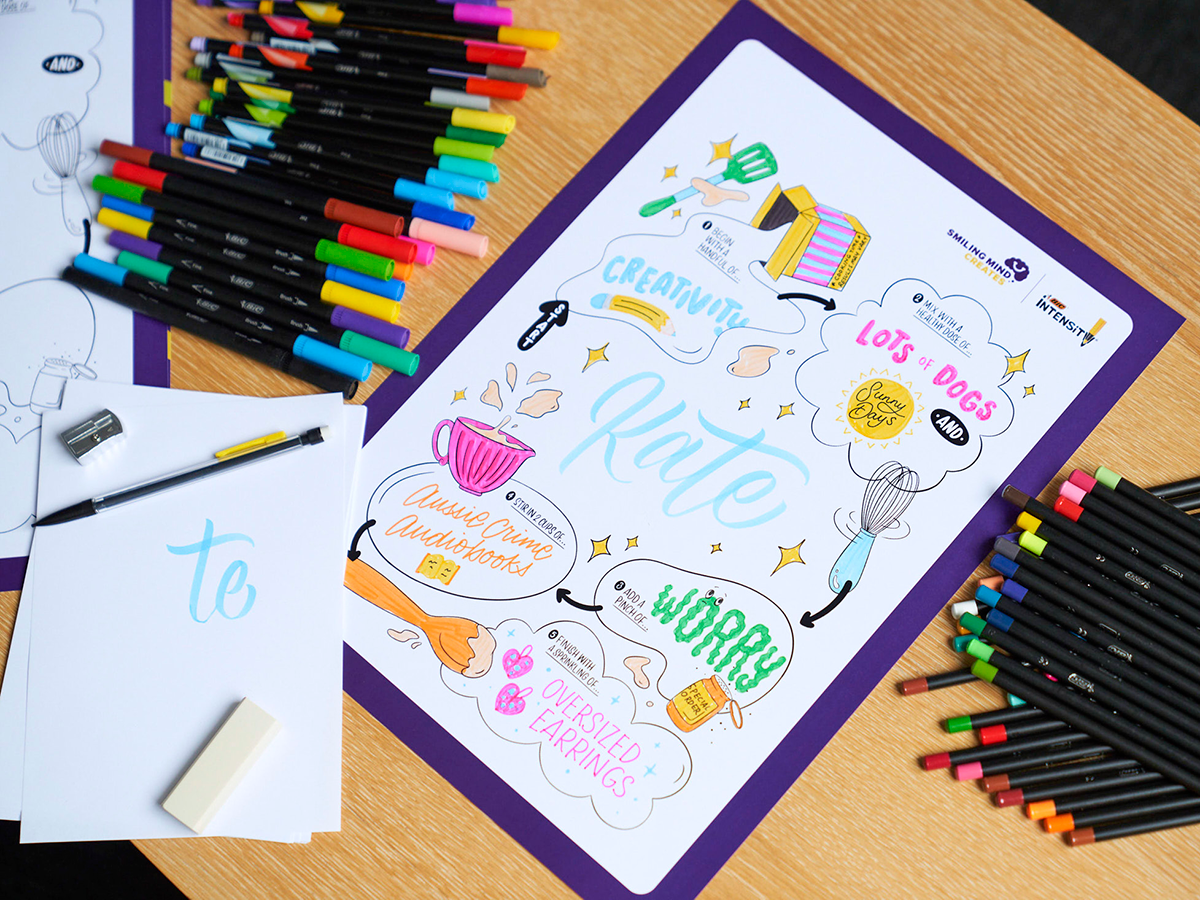 ·AND·
① BEGIN
WITH A
HANDFUL OF...
CREATIVITY
START
SMILING MIND
CREATES
BIC
INTENSITY
② MIX WITH A
HEALTHY DOSE OF...
LOTS OF DOGS
Sunny
Days
·AND·
Kate
③ ADD A
PINCH OF...
WORRY
SPECIAL
ORDER!
④ STIR IN 2 CUPS OF...
Aussie Crime
Audiobooks
⑤ FINISH WITH
A SPRINKLING OF...
OVERSIZED
EARRINGS
te